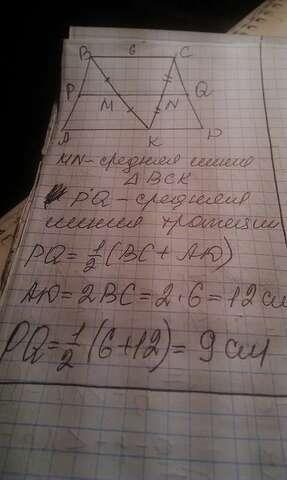 B 6 C
P M N Q
A K D
MN - средняя линия
△BCK
PQ - средняя
линия трапеции
PQ = 1/2 (BC + AD)
AD = 2BC = 2·6 = 12 см
PQ = 1/2 (6+12) = 9 см